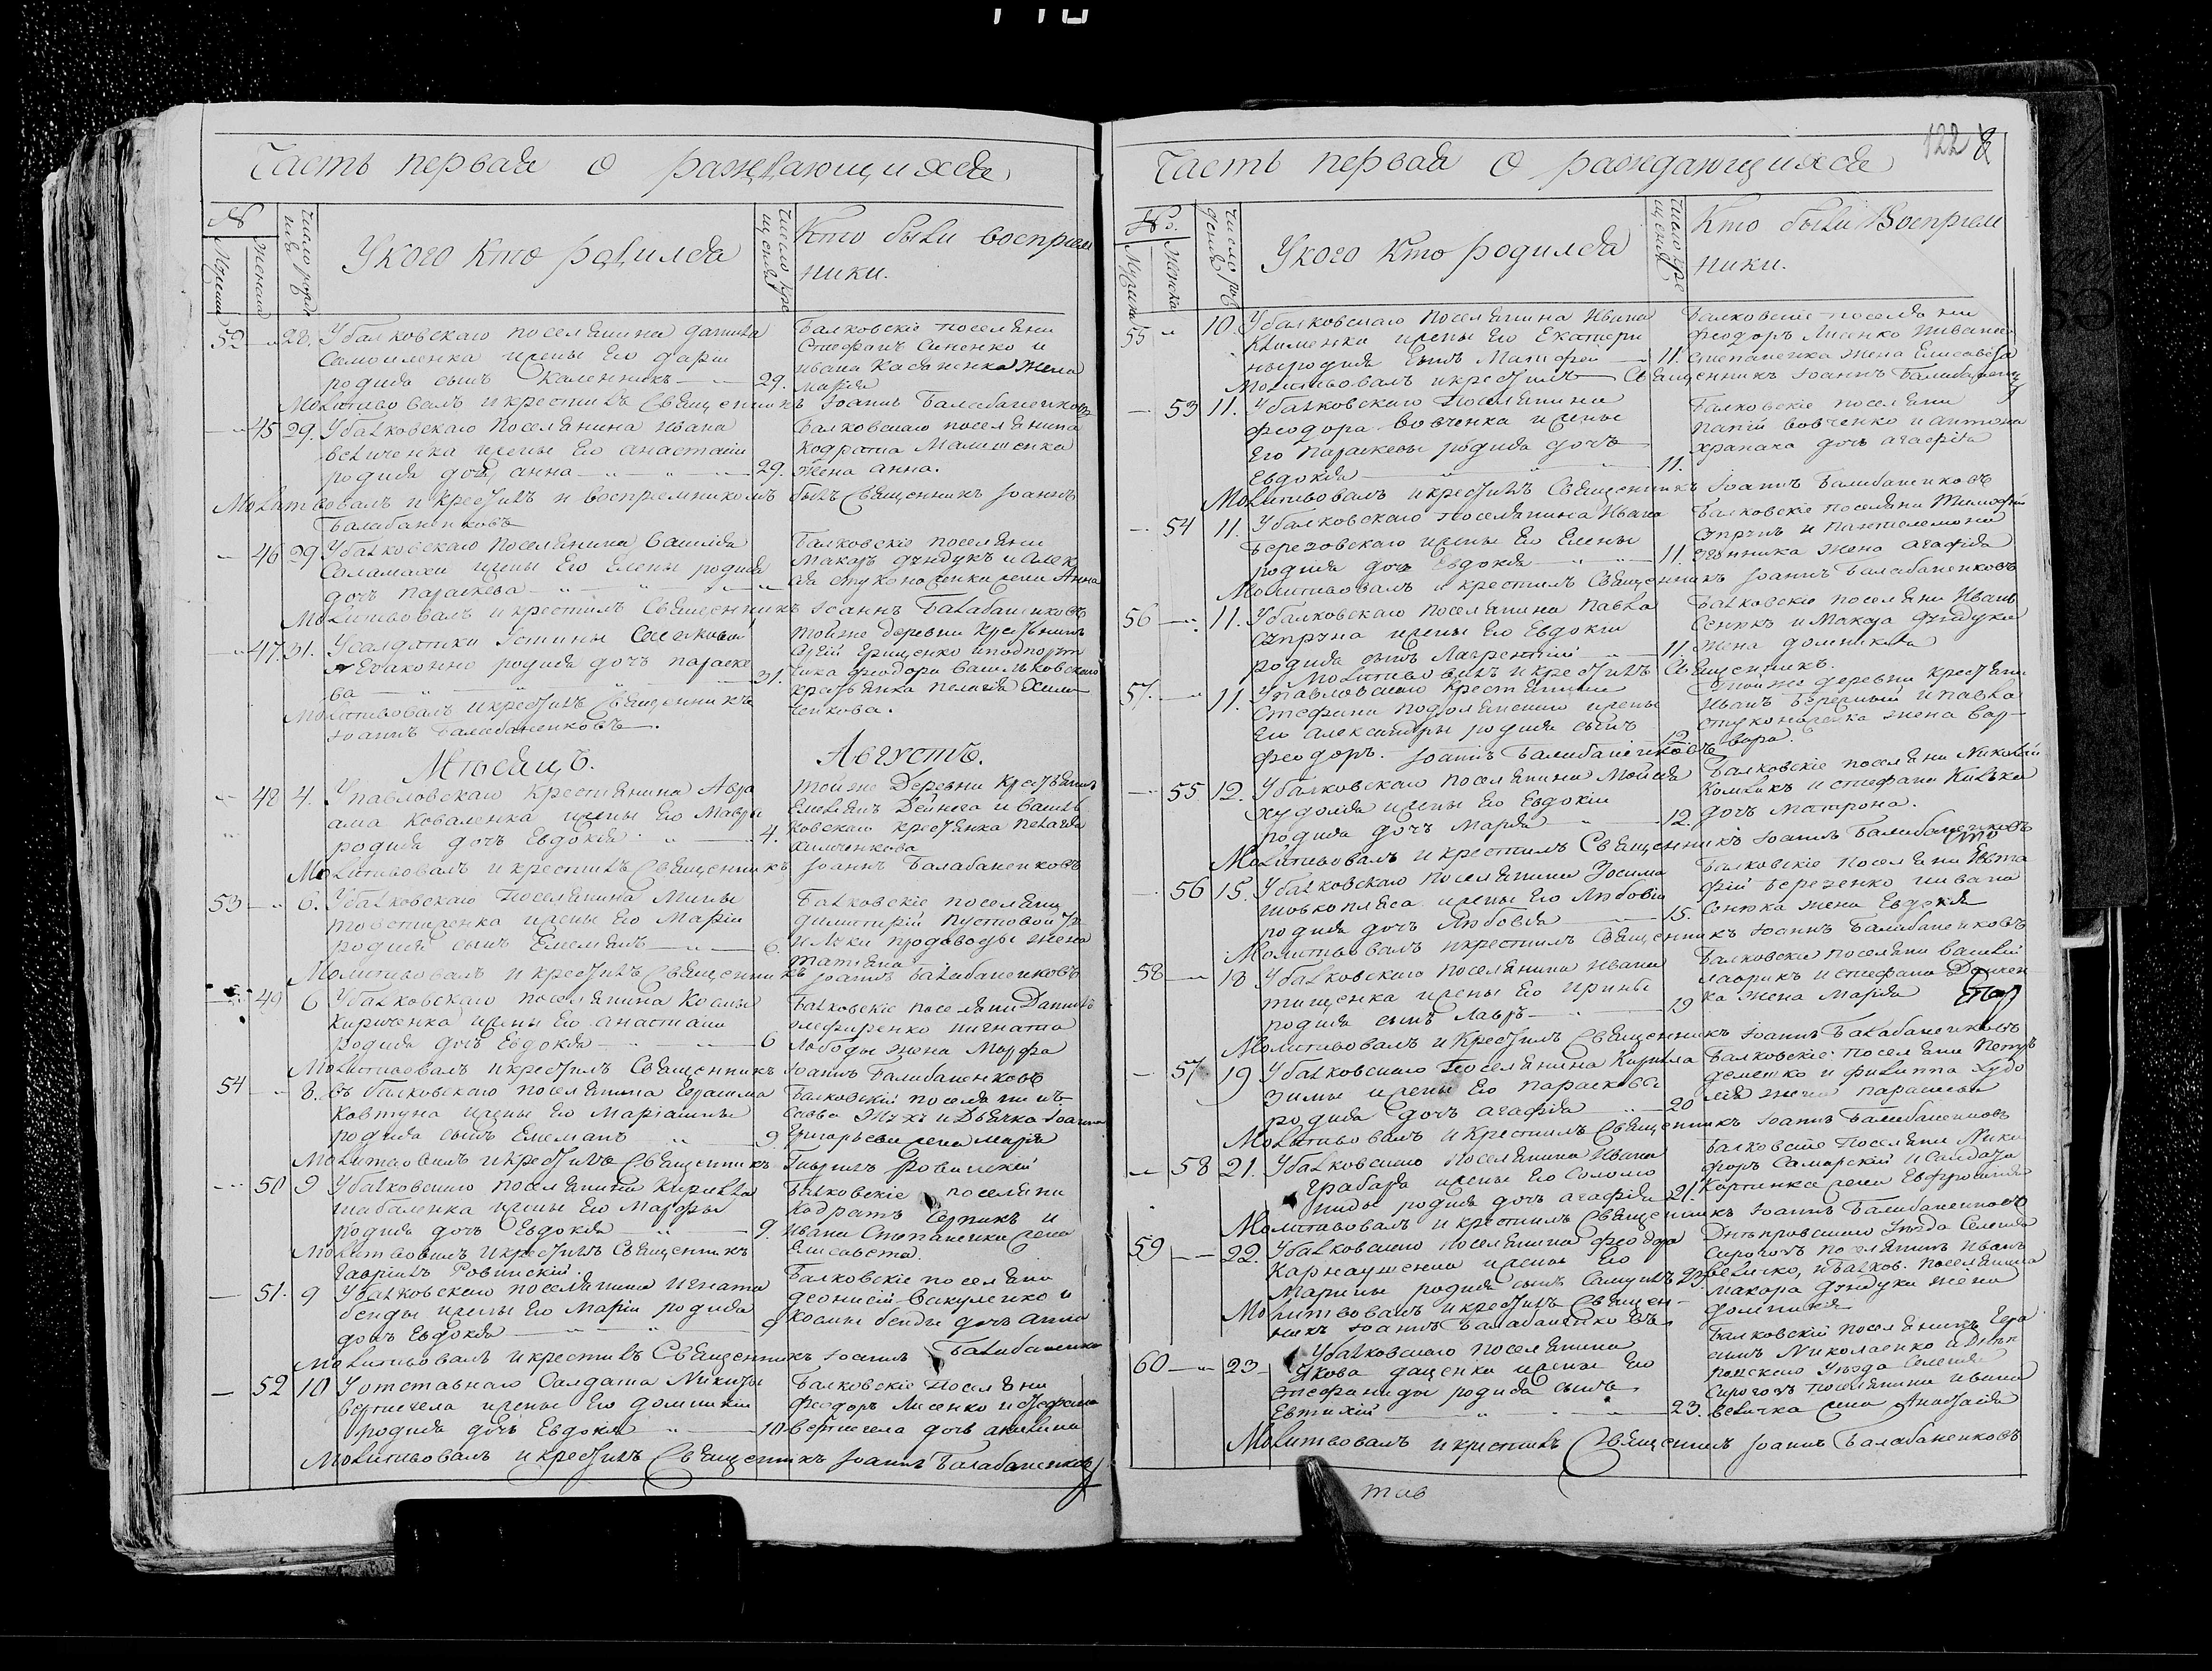 Часть первая о раждающихся
№
Мужеска
Женска
Число рожденія
У кого кто родился
Число крещенія
Кто были воспріем
ники.
52 28. У балковскаго поселянина данила
Самоиленка жены его дарiи
родился сынъ Каленникъ 29.
Балковскіе поселяни
Стефанъ Синенко и
ивана Касяненка жена
марія
Молитвовалъ и крестилъ Священникъ Іоаннъ Балабаненковъ
45 29. У балковскаго поселянина ивана
величенка жены его анастасіи
родися дочь анна 29.
балковскаго поселянина
Кодрата Малишенка
жена анна.
Молитвовалъ и крестилъ и воспремникомъ былъ Священникъ Іоаннъ
Балабаненковъ
46 29 У балковскаго поселянина василія
Соламахи жены его елены родися
дочь параскева
Балковскіе поселяни
Макаръ дундукъ и
жена Анна
Молитвовалъ и крестилъ Священникъ Іоаннъ Балабаненковъ
47. 31. У салдатки Устины
незаконно родися дочь параске
ва 31.
тойже деревни крестьянинъ
грищенко
чика феодора васильковскаго
крестьянка пелагія
ченкова.
Молитвовалъ и крестилъ Священникъ
Іоаннъ Балабаненковъ.
Мѣсяцъ. Августъ.
48 4. У павловскаго крестянина Авра
ама Коваленка жены его Мавры
родися дочь Евдокія 4.
тойже деревни крестьянинъ
Емельянъ Дейнега и василь
ковскаго крестьянка пелагія
хименкова
Молитвовалъ и крестилъ Священникъ Іоаннъ Балабаненковъ
53 6. У балковскаго поселянина Мины
товстиренка жены его Маріи
родися сынъ Емелянъ 6.
Балковскіе поселяни
димитрій пустовойтъ
и луки продаводы жена
татіана
Молитвовалъ и крестилъ Священникъ Іоаннъ Балабаненковъ
49 6 У балковскаго поселянина Космы
Кириченка жены его анастасіи
родися дочь Евдокія 6
Балковскіе поселяни Данилъ
олефиренко и игната
Лободы жена Марфа
Молитвовалъ и крестилъ Священникъ Іоаннъ Балабаненковъ
54 8. въ балковскаго поселянина Герасима
Ковтуна жены его Маріанны
родися сынъ Емелианъ 9
Балковскій поселянинъ
Савва Жукъ и Дьячка Іоанна
Григорьева жена марія
Молитвовалъ и крестилъ Священникъ Гавріилъ Ровинскій
50 9 У балковскаго поселянина Кирилла
шабаленка жены его Марфы
родися дочь Евдокія 9.
Балковскіе поселяни
Кодратъ Серпикъ и
ивана Степаненка жена
Елисавета.
Молитвовалъ и крестилъ Священникъ
Гавріилъ Ровинскій.
51. 9 У балковскаго поселянина игната
бенды жены его Маріи родися
дочь Евдокія 9
Балковскіе поселяни
деонисій Вакуленко и
Космы бенды дочь анна
Молитвовалъ и крестилъ Священникъ Іоаннъ Балабаненко
52 10 У отставнаго Салдата Никиты
вертигела жены его домникіи
родися дочь Евдокія 10.
Балковскіе поселяни
Феодоръ Лисенко и стефана
вертигела дочь акилина
Молитвовалъ и крестилъ Священникъ Іоаннъ Балабаненковъ
122
Часть первая о раждающихся
№.
Мужеска
Женска
Число рожденія
У кого кто родился
Число крещенія
Кто были Воспріем
ники.
55 10. У балковскаго поселянина ивана
Клименка жены его Екатери
ны родися сынъ Матофей 11.
Балковскіе поселяни
феодоръ Лисенко и ивана
степаненка жена Елисавета
Молитвовалъ и крестилъ Священникъ Іоаннъ Балабаненко
53 11. У балковскаго Поселянина
феодора вовченка жены
Его параскевы родися дочь
Евдокія 11.
Балковскіе поселяни
папій вовченко и антона
храпака дочь агафія
Молитвовалъ и крестилъ Священникъ Іоаннъ Балабаненковъ
54 11. У балковскаго поселянина ивана
Березовскаго жены его Елены
родися дочь Евдокія 11.
Балковскіе поселяни Тимофей
Супрунъ и пантелемона
жена агафія
Молитвовалъ и крестилъ Священникъ Іоаннъ Балабаненковъ
56 11. У балковскаго поселянина павла
Супруна жены его Евдокіи
родися сынъ Лаврентій 11.
Балковскіе поселяни иванъ
Сенюкъ и Макара дундука
жена домникія
Молитвовалъ и крестилъ Священникъ.
57. 11. У павловскаго крестянина
Стефана подолянскаго жены
его александры родися сынъ
феодоръ. 12. Іоаннъ Балабаненковъ
Тойже деревни крестяни
иванъ Бережный и павла
жена вар-
вара.
55 12. У балковскаго поселянина Моисея
худолія жены его Евдокіи
родися дочь Марія 12.
Балковскіе поселяни Николай
Комликъ и стефана Килька
дочь Матрона.
Молитвовалъ и крестилъ Священникъ Іоаннъ Балабаненковъ
56 15. У балковскаго поселянина Зосима
шовкопляса жены его Любови
родися дочь Любовія 15.
Балковскіе поселяни Евста
фій Березенко и ивана
Сенюка жена Евдокія
Молитвовалъ и крестилъ Священникъ Іоаннъ Балабаненковъ
58 18 У балковскаго поселянина ивана
тищенка жены его ирины
родися сынъ лавръ 19
Балковски поселяни василій
лаврикъ и стефана
ка жена Марія
Молитвовалъ и Крестилъ Священникъ Іоаннъ Балабаненковъ
57 19 У балковскаго Поселянина Кирила
Зимы жены его параскевы
родися дочь агафія 20
Балковскіе поселяни петръ
демешко и филиппа худо
лія жена параскева
Молитвовалъ и Крестилъ Священникъ Іоаннъ Балабаненковъ
58 21. У балковскаго поселянина ивана
грабара жены его Соломо
ниды родися дочь агафія 21.
Балковскіе Поселяни Ники
форъ Самарскій и
Картинка жена Евфросинія
Молитвовалъ и крестилъ Священникъ Іоаннъ Балабаненковъ
59 22. У балковскаго поселянина феодора
Карнаушенка жены его
Марины родися сынъ Самуилъ 23
Днѣпровскаго Уѣзда Селенія
Сирогозъ поселянинъ иванъ
величко, и балков. поселянина
макара дундука жена
домникія
Молитвовалъ и крестилъ Священ-
никъ Іоаннъ Балабаненковъ
60 23 У балковскаго поселянина
Якова даценка жены его
стефаниды родися сынъ
Евтихій 23.
Балковскій поселянинъ Гера
симъ Николаенко и Днѣп
ровскаго Уѣзда Селенія
Сирогозъ поселянина ивана
величка жена Анастасія
Молитвовалъ и крестилъ Священникъ Іоаннъ Балабаненковъ
тав